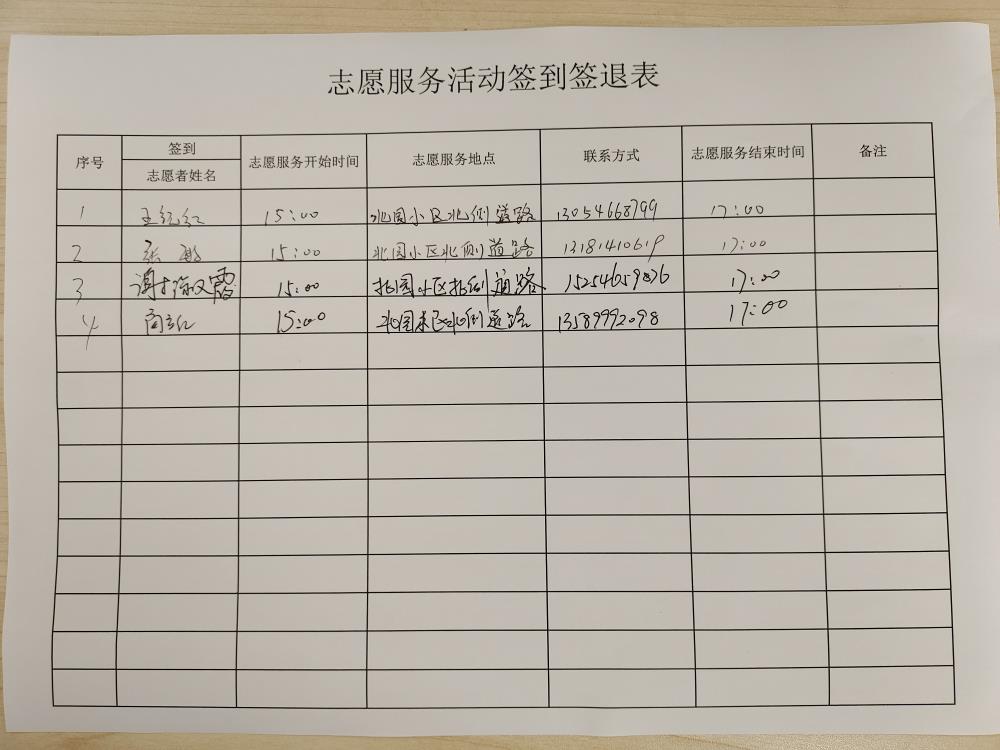 志愿服务活动签到签退表
序号 签到 志愿者姓名 志愿服务开始时间 志愿服务地点 联系方式 志愿服务结束时间 备注
1 王纪红 15:00 北园小区北侧道路 13054668799 17:00
2 张 15:00 北园小区北侧道路 13181410619 17:00
3 15:00 北园小区北侧道路 15254659826 17:00
4 15:00 北园小区北侧道路 13589992098 17:00